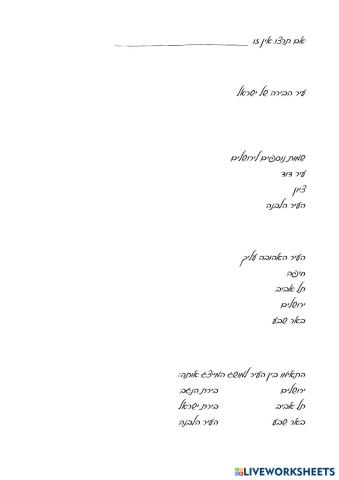 אם תרצו אין זו ____________________
עיר הבירה של ישראל
שמות נוספים לירושלים
עיר דוד
ציון
העיר הלבנה
העיר האהובה עליך
חיפה
תל אביב
ירושלים
באר שבע
התאימו בין העיר למושג המייצג אותה:
ירושלים בירת הנגב
תל אביב בירת ישראל
באר שבע העיר הלבנה
LIVEWORKSHEETS